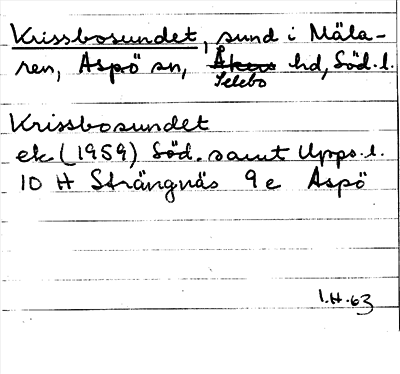 Krissbosundet, sund i Mäla-
ren, Aspö sn, Åkers hd, Söd.l.
Selebo
Krissbosundet
ek (1959) Söd. samt Upps.l.
10 H Strängnäs 9e Aspö
I.H.63